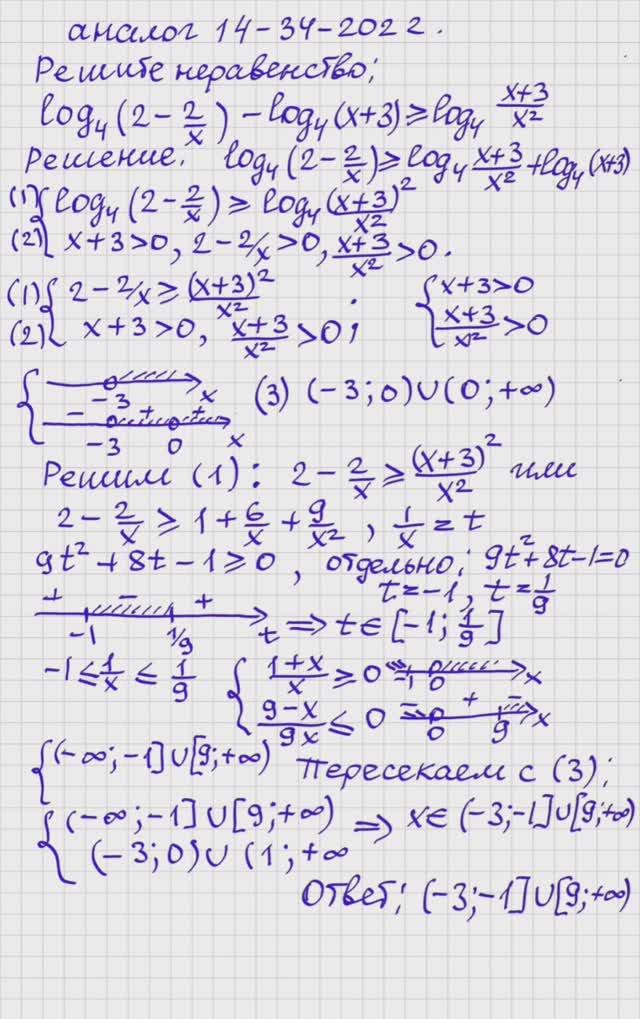 аналог 14-34-2022.
Решите неравенство;
log₄(2 - 2/x) - log₄(x+3) ≥ log₄ (x+3)/x²
Решение. log₄(2 - 2/x) ≥ log₄ (x+3)/x² + log₄(x+3)
(1) { log₄(2 - 2/x) ≥ log₄ (x+3)²/x²
(2) { x+3>0, 2 - 2/x >0, (x+3)/x² >0.
(1) { 2 - 2/x ≥ (x+3)²/x² ; { x+3>0
(2) { x+3>0, (x+3)/x² >0; { (x+3)/x² >0
{ -3 x (3) (-3;0)∪(0;+∞)
- + +
-3 0 x
Решим (1): 2 - 2/x ≥ (x+3)²/x² или
2 - 2/x ≥ 1 + 6/x + 9/x², 1/x = t
9t² + 8t - 1 ≥ 0, отдельно; 9t²+8t-1=0
t=-1, t=1/9
+ - +
-1 1/9 t ⇒ t∈[-1; 1/9]
-1 ≤ 1/x ≤ 1/9 { (1+x)/x ≥ 0 -1 0 x
{ (9-x)/9x ≤ 0 - + - 0 9 x
{ (-∞;-1]∪[9;+∞) Пересекаем с (3);
{ (-∞;-1]∪[9;+∞) ⇒ x∈(-3;-1]∪[9;+∞)
{ (-3;0)∪(1;+∞
Ответ; (-3;-1]∪[9;+∞)